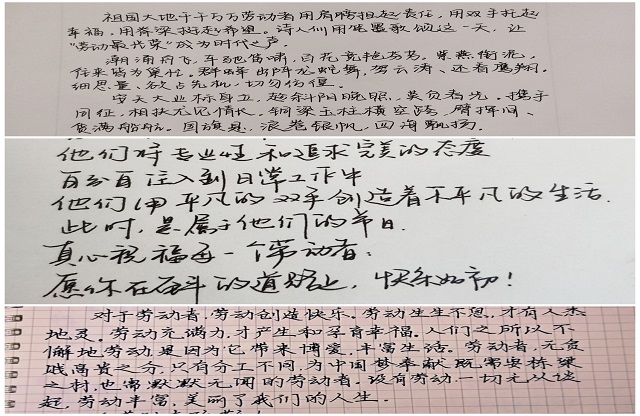 祖国大地千千万万劳动者用肩膀担起责任，用双手托起
幸福，用脊梁挺起希望。诗人们用笔墨歌颂这一天，让
"劳动最光荣"成为时代之声。
潮涌舟飞，车驰笛啸，百花竞艳芬芳。紫燕衔泥，
往来皆为巢忙。群山阵阵龙蛇舞，看云涛、还看鹰翔。
细思量、欲占先机，切勿彷徨。
守天大业标身卫，趁斜阳晚照，莫负春光。携手
同征，相扶无记情长。铜梁玉柱横空跨，臂挥间、
货满船舫。国旗悬、浪卷银帆，四海飘扬。
他们将专业性和追求完美的态度
百分百注入到日常工作中
他们用平凡的双手创造着不平凡的生活.
此时，是属于他们的节日.
真心祝福每一个劳动者：
愿你在奋斗的道路上，快乐如初！
对于劳动者，劳动创造快乐。劳动生生不息，才有人杰
地灵。劳动充满力，才产生和孕育幸福。人们之所以不
懈地劳动，是因为它带来博爱，丰富生活。劳动者，无贵
贱高贵之分，只有分工不同，为中国梦奉献既需要栋梁
之材，也需默默无闻的劳动者。没有劳动一切无从谈
起，劳动丰富、美丽了我们的人生.